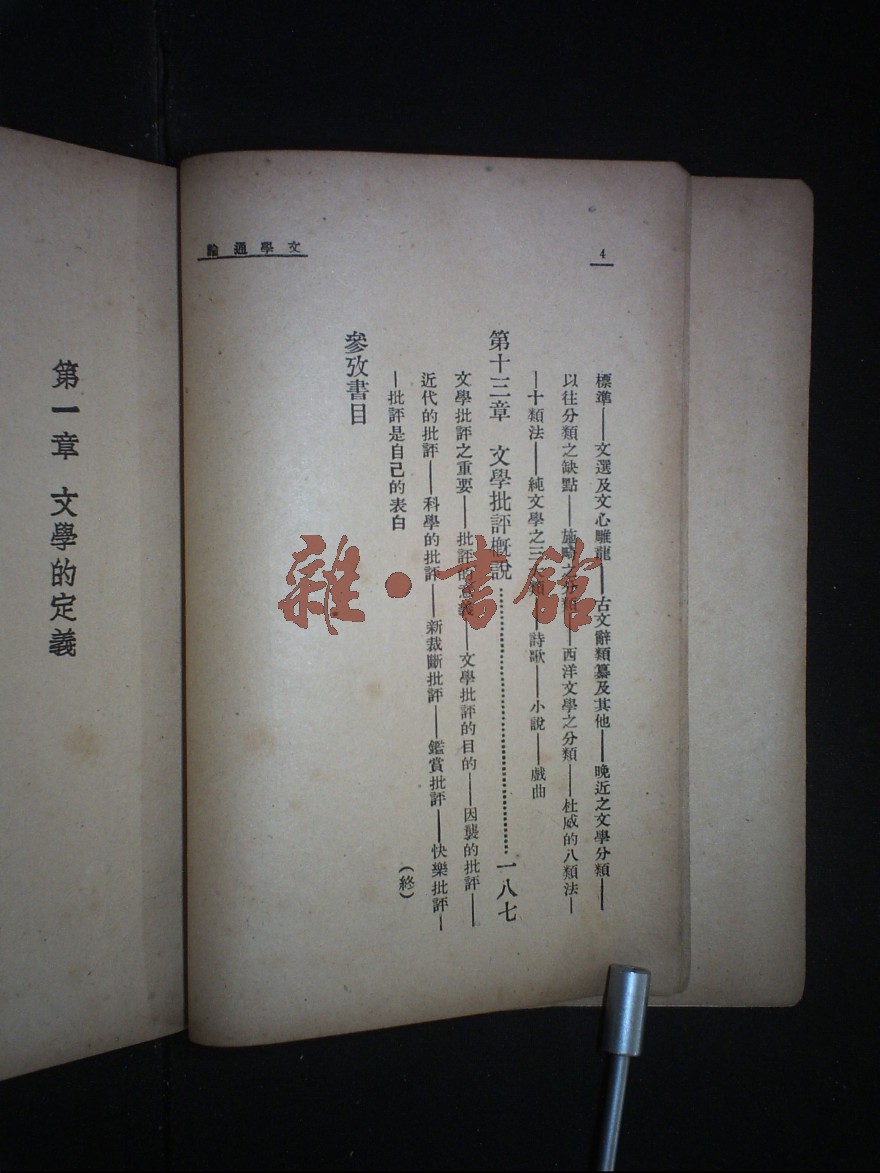 4
文學通論
標準——文選及文心雕龍——古文辭類纂及其他——晚近之文學分類——
以往分類之缺點——施畸之分類——西洋文學之分類——杜威的八類法—
—十類法——純文學之三大類——詩歌——小說——戲曲
第十三章 文學批評概說…………一八七
文學批評之重要——批評的意義——文學批評的目的——因襲的批評——
近代的批評——科學的批評——新裁斷批評——鑑賞批評——快樂批評—
—批評是自己的表白
參攷書目
(終)
第一章 文學的定義
雜·書館